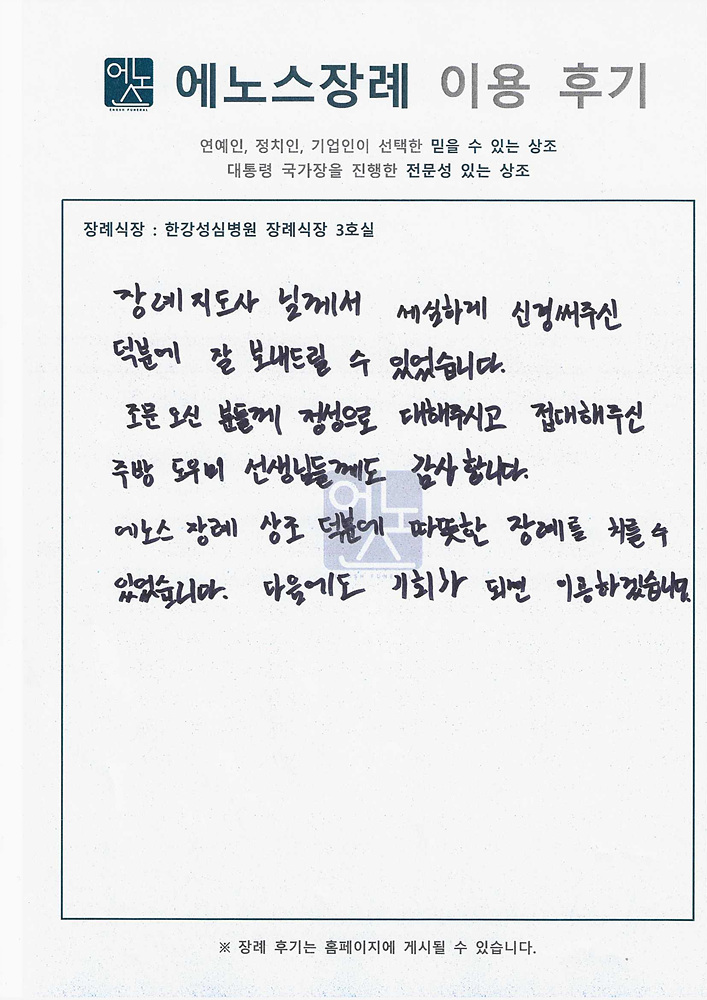 에노스
ENOSH FUNERAL
에노스장례 이용 후기
연예인, 정치인, 기업인이 선택한 믿을 수 있는 상조
대통령 국가장을 진행한 전문성 있는 상조
장례식장 : 한강성심병원 장례식장 3호실
장례지도사 님께서 세실하게 신경써주신
덕분에 잘 보내드릴 수 있었습니다.
조문 오신 분들께 정성으로 대해주시고 접대해주신
주방 도우미 선생님들께도 감사합니다.
에노스 장례 상조 덕분에 따뜻한 장례를 치를 수
있었습니다. 다음에도 기회가 되면 이용하겠습니다.
에노스
※ 장례 후기는 홈페이지에 게시될 수 있습니다.